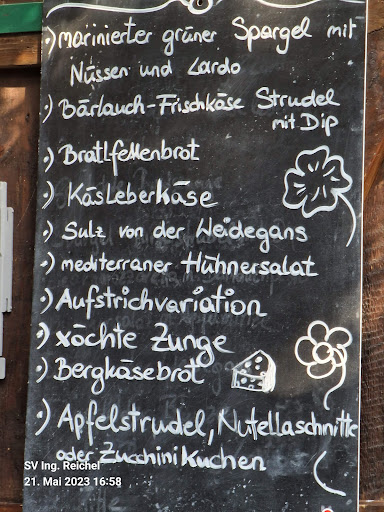 ·) marinierter grüner Spargel mit
Nüssen und Lardo
·) Bärlauch-Frischkäse Strudel
mit Dip
·) Bratlfettenbrot
·) Käsleberkäse
·) Sulz von der Weidegans
·) mediterraner Hühnersalat
·) Aufstrichvariation
·) xöchte Zunge
·) Bergkäsebrot
·) Apfelstrudel, Nutellaschnitte
oder Zucchini Kuchen
SV Ing. Reichel
21. Mai 2023 16:58